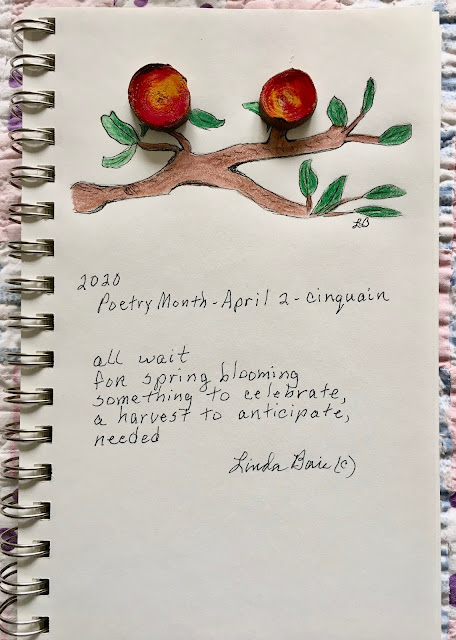 LB
2020
Poetry Month - April 2 - cinquain
all wait
for spring blooming
something to celebrate,
a harvest to anticipate,
needed
Linda Baie (c)